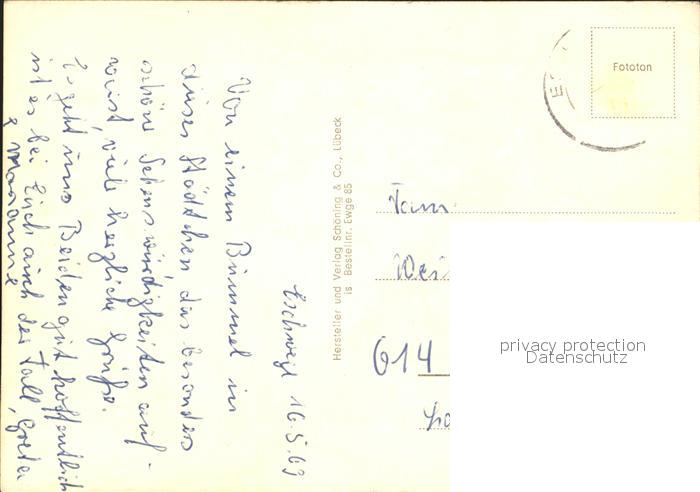 Eschwege 16.5.69
Von einem Bummel in
dieses Städtchen, das besonders
schöne Sehenswürdigkeiten auf-
weist, viele herzliche Grüße.
Es geht uns Beiden gut hoffentlich
ist es bei Euch auch der Fall, Greta
& Marianne
Hersteller und Verlag Schöning & Co., Lübeck
is Bestellnr. Ewge 85
Fototon
Fam.
614
privacy protection
Datenschutz